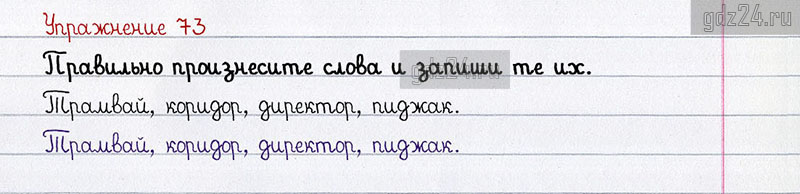 gdz24.ru
Упражнение 73
Правильно произнесите слова и запиши те их.
gdz24.ru
Трамвай, коридор, директор, пиджак.
Трамвай, коридор, директор, пиджак.